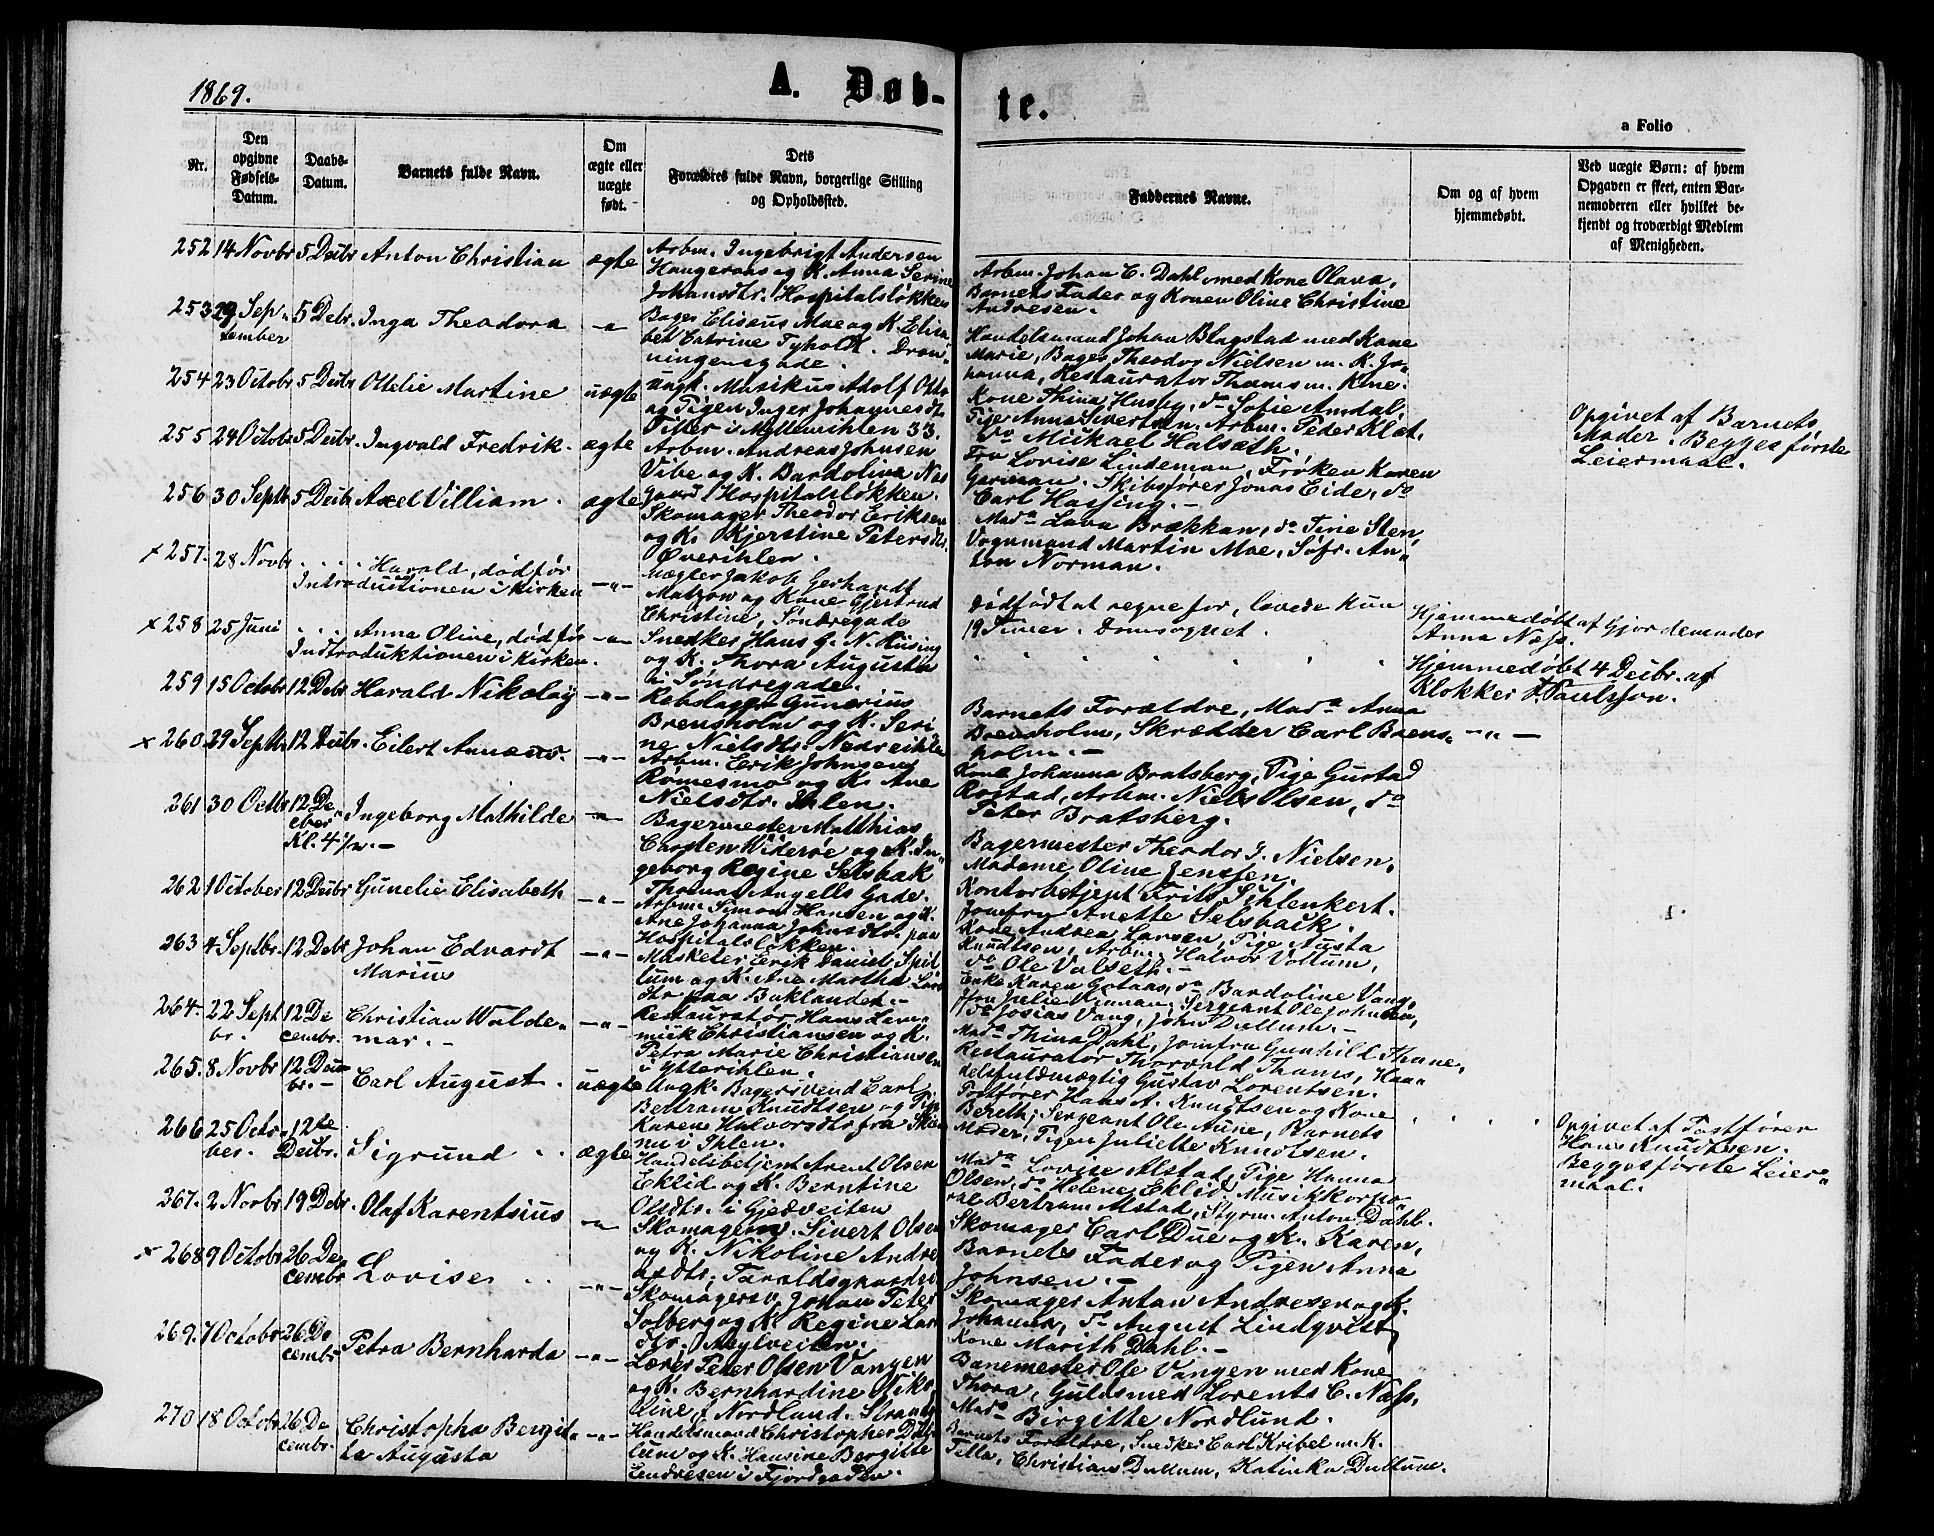 1869.
A. Døb-
te.
a Folio
Nr.
Den opgivne Fødsels-Datum.
Daabs-Datum.
Barnets fulde Navn.
Om ægte eller uægte født.
Dets Forældres fulde Navn, borgerlige Stilling og Opholdssted.
Faddernes Navne.
Om og af hvem hjemmedøbt.
Ved uægte Børn: af hvem Opgaven er skeet, enten Barnemoderen eller hvilket bekjendt og troværdigt Medlem af Menigheden.
252 14 Novbr 5 Decbr Anton Christian ægte
Arbm. Ingebrigt Andersen
Haugeraas og K. Anna Serine
Johansdtr. Hospitalsløkken
Arbm. Johan C. Dahl med Kone Olava,
Barnets Fader og Konen Oline Christine
Andresen.
253 29 September 5 Debr. Inga Theodora -"-
Bager Elisæus Moe og K. Elisa-
bet Catrine Tyholt. Dron-
ningensgade.
Handelsmand Johan Blagstad med Kone
Marie, Bager Theodor Nielsen m. K. Jo-
hanna, Restauratør Thams m. Kone.
254 23 Octobr 5 Decbr Ottelie Martine uægte
Ungk. Musikus Adolf Otto
og Pigen Inger Johannesdtr.
Øier i Møllerihlen 33.
Kone Thina Husby, do Sofie Amdal,
Pige Anna Sivertsen. Arbm. Peder Klæt.
do Mickael Halsæth.
Opgivet af Barnets
Moder. Begges første
Leiermaal.
255 24 Octobr 5 Decbr. Ingvald Fredrik. ægte
Arbm. Andreas Johnsen
Vibe og K. Bardoline Næs-
gaard, Hospitalsløkken.
Fru Lovise Lindeman, Frøken Karen
Garman. Skibsfører Jonas Eide, do
Carl Hassing.-
256 30 Septbr 5 Decbr Axel Villiam. ægte
Skomager Theodor Eriksen
og K. Kjerstine Petersdtr.
Øverihlen.
Mada Lava Brækkan, do Tine Sten,
Vognmand Martin Moe, Søfr. An-
ton Norman.
x 257. 28 Novbr . . . . Harald, død før
Introductionen i Kirken -"-
Mægler Jakob Gerhardt
Matzow og Kone Gjertrud
Christine, Søndregade
Dødfødt at regne for, levede kun
19 Timer. Domsognet.
Hjemmedøbt af Gjordemoder
Anna Næss.
x 258 25 Juni . . . Anna Oline, død før
Indtroduktionen i Kirken. -"-
Snedker Hans G. N. Hüsing
og K. Thora Augusta
i Søndregade.
Hjemmedøbt 4 Decbr. af
Klokker F. Paulsson.
259 15 Octobr 12 Debr Harald Nikolay -"-
Rebslager Gunerius
Brensholm og K. Seri-
ne Nielsdtr. Nedreihlen
Barnets Forældre, Mada Anna
Brensholm, Skrædder Carl Brens-
holm.-
-"-
x 260. 29 Septbr 12 Decbr. Eilert Annæus. -"-
Arbm. Erik Johnsen
Rømesmo og K. Ane
Nielsdtr. Ihlen.
Kone Johanna Bratsberg, Pige Gustad
Rostad, Arbm. Niels Olsen, do
Peter Bratsberg.
261 30 Octbr 12 De-
cber
Kl. 4 1/2.- Ingeborg Mathilde -"-
Bagermester Matthias
Carsten Widerøe og K. In-
geborg Regine Selsbak
Thomas Angells Gade.
Bagermester Theodor J. Nielsen,
Madame Oline Jenssen.
Kontorbetjent Frits Schlenkert.
Jomfru Anette Selsback.
262 1 October 12 Decbr Gunelie Elisabeth -"-
Arbm. Simon Hansen og K.
Ane Johanna Johnsdtr. paa
Hospitalsløkken.
Kone Andrea Larsen, Pige Austa
Knudtsen, Arbm. Halvor Vollum,
do Ole Valseth.-
263 4 Septbr. 12 Debr Johan Edvardt
Marius -"-
Musketer Erik Daniel Spil-
lum og K. Ane Martha Lars-
dtr. paa Baklandet.-
Enke Karen Gotaas, do Bardoline Vang,
Jfru Julie Kinman, Sergeant Ole Johnsen,
do Josias Vang, John Dullum.-
264. 22 Sept
br. 12 De
cembr. Christian Walde-
mar.- -"-
Restauratør Hans Lau-
midt Christiansen og K.
Petra Marie Christiansen
i Ytterihlen.
Mada Thina Dahl, Jomfru Gunhild Thane,
Restauratør Thorvald Thams, Han-
delsfuldmægtig Gustav Lorentsen.
265. 8 Novbr 12 Decem
br.- Carl August. uægte
Ungk. Bagersvend Carl
Bertram Knudtsen og Pige
Karen Halvorsdtr. fra Skau-
nu i Ihlen.
Postfører Hans A. Knudtsen og Kone
Bereth, Sergeant Ole Aune, Barnets
Moder, Pigen Juliette Knudtsen.
Opgivet af Postfører
Hans Knudtsen.
Begges første Leier-
maal.
266 25 Octo-
ber. 12te
Decbr. Sigrund . . ægte
Handelsbetjent Arent Olsen
Eklid og K. Berntine
Olsdtr. i Gjedveiten
Mada Lovise Alstad, Pige Hanna
Olsen, do Helene Eklid, Musikkorpo-
ral Bertram Alstad, Styrm. Anton Dahl.
267. 2 Novbr 19 Debr. Olaf Karentsius -"-
Skomagersv. Sivert Olsen
og K. Nikoline Andre-
asdtr. Taraldsgaarden
Skomager Carl Due og K. Karen,
Barnets Fader og Pigen Anna
Johnsen.-
x 268 9 Octobr 26 De-
cembr Lovise . . -"-
Skomagersv. Johan Peter
Solberg og K. Regine Lars-
dtr. Møylveiten.
Skomager Antan Andresen og K.
Johanna, do August Lindqvist,
Kone Marith Dahl.-
269. 7 Octobr 26 De
cembr Petra Bernharda -"-
Lærer Peter Olsen Vangen
og K. Bernhardine Niko-
line f. Nordlund. Strandg.
Banemester Ole Vangen med Kone
Thora, Guldsmed Lorents C. Næss,
Mada Birgitte Nordlund.
270 18 Octobr 26 De
cembr. Christopha Bergit-
ta Augusta -"-
Handelsmand Christopher Dul-
lum og K. Hansine Bergitte
Endresen i Fjordgaden.
Barnets Forældre, Snedker Carl Kribel m. K.
Tella, Christian Dullum, Katinka Dullum.